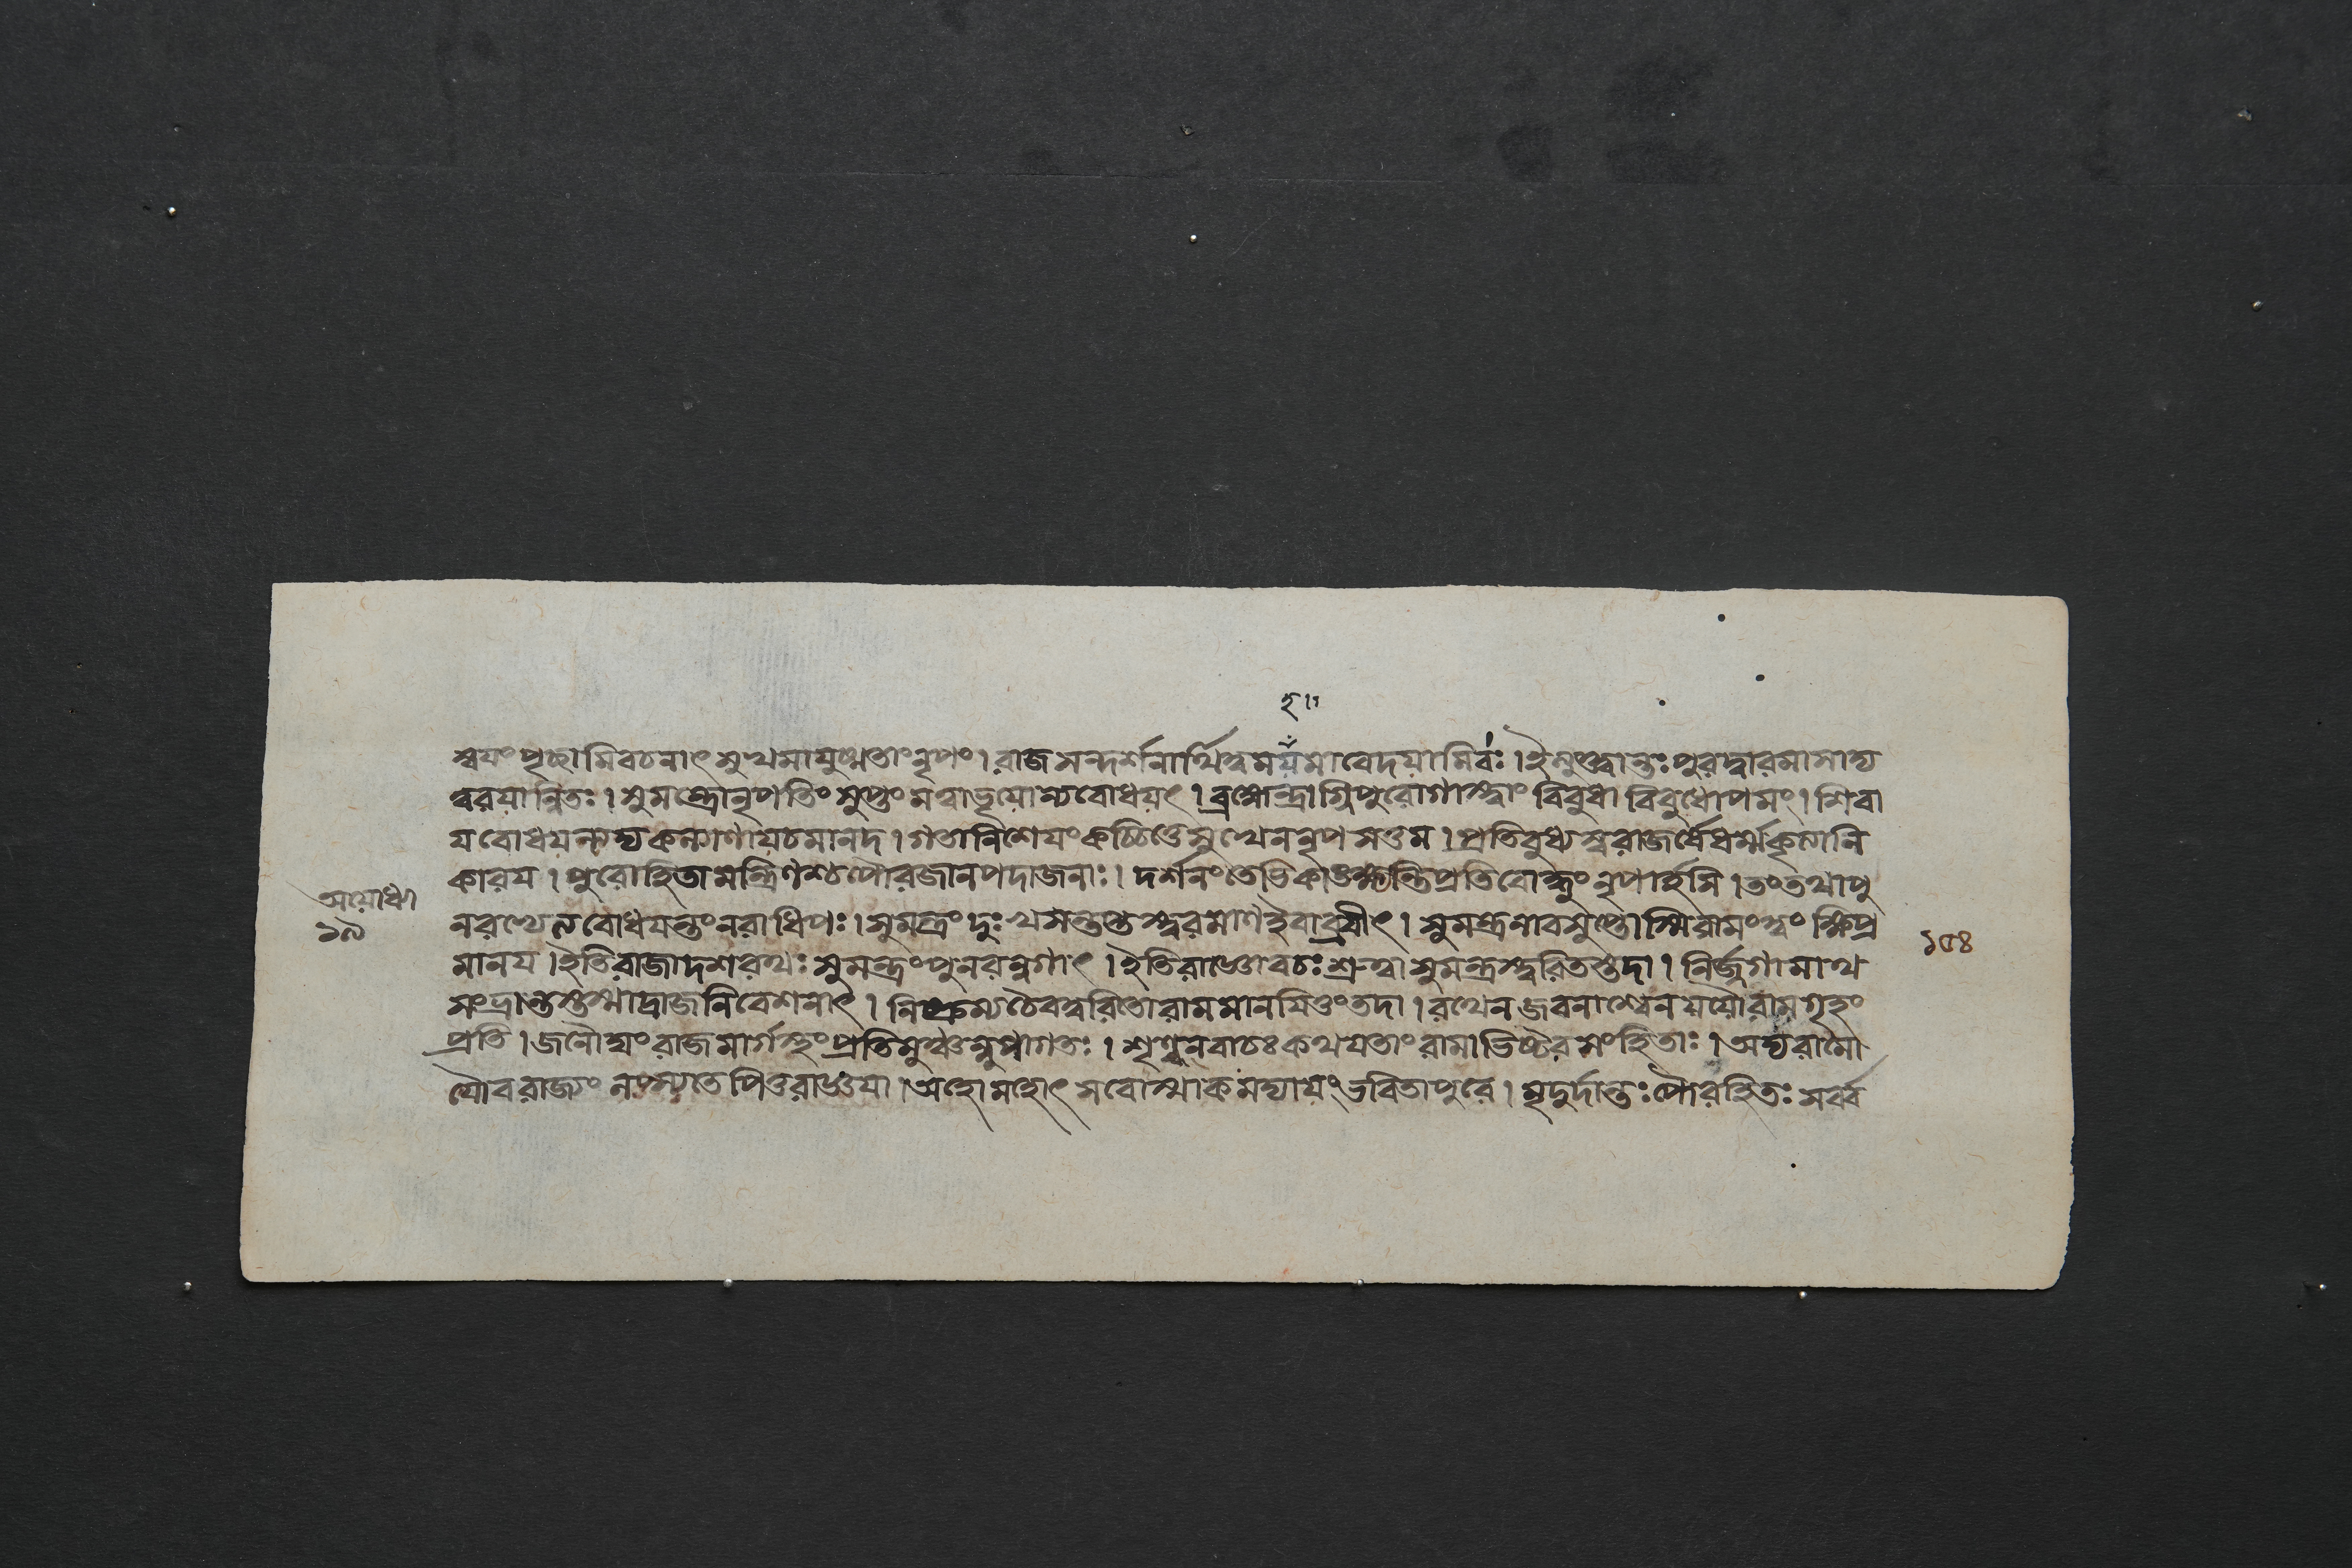 হ॥
ষ্বযং পৃচ্ছামি বচনাৎ সুখমাযুষ্মতাং নৃপং। রাজসন্দর্শনার্থিত্বমযমাবেদয়ামি বঃ। ইত্যুক্ত্বান্তঃপুরদ্বারমাসাদ্য
ত্বরযান্বিতঃ। সুমন্ত্রো নৃপতিং সুপ্তং মত্বা ভূয়োভ্যবোধয়ৎ। ব্রহ্মেন্দ্রাগ্নিপুরোগাস্ত্বাং বিবুধা বিবুধোপমং। শিবা
য বোধযন্ত্বদ্য কল্যাণায় চ মানদ। গতা নিশেয়ং কচ্চিত্তে সুখেন নৃপসত্তম। প্রতিবুধ্যস্ব রাজর্ষে ধর্ম্মকৃত্যানি
কারয। পুরোহিতা মন্ত্রিণশ্চ পৌরজানপদা জনাঃ। দর্শনং তেভিকাঙ্ক্ষন্তি প্রতিবোদ্ধুং নৃপার্হসি। তং তথা পু
অযোধ্যা
১৯
নরথেন বোধযন্তং নরাধিপঃ। সুমন্ত্রং দুঃখসন্তপ্তস্ত্বরমাণ ইবাব্রবীৎ। সুমন্ত্র নাবসুপ্তোস্মি রামং ত্বং ক্ষিপ্র
১৫৪
মানয। ইতি রাজা দশরথঃ সুমন্ত্রং পুনরন্বগাৎ। ইতি রাজ্ঞো বচঃ শ্রুত্বা সুমন্ত্রস্ত্বরিতস্তদা। নির্জ্জগামাথ
সংভ্রান্তস্তস্মাদ্রাজনিবেশনাৎ। নিষ্ক্রম্য চৈব ত্বরিতো রামমানযিতুং তদা। রথেন জবনাশ্বেন যযৌ রামগৃহং
প্রতি। জনৌঘং রাজমার্গস্থং প্রতিমুঞ্চন্নুপাগতঃ। শৃণ্বন্ বাচঃ কথযতাং রামাভিষ্টবসংহিতাঃ। অদ্য রামো
যৌবরাজ্যং লপ্স্যতে পিতুরাজ্ঞযা। অহো মহোৎসবোস্মাকমদ্যাযং ভবিতা পুরে। মৃদুর্দান্তঃ পৌরহিতঃ সর্ব্ব